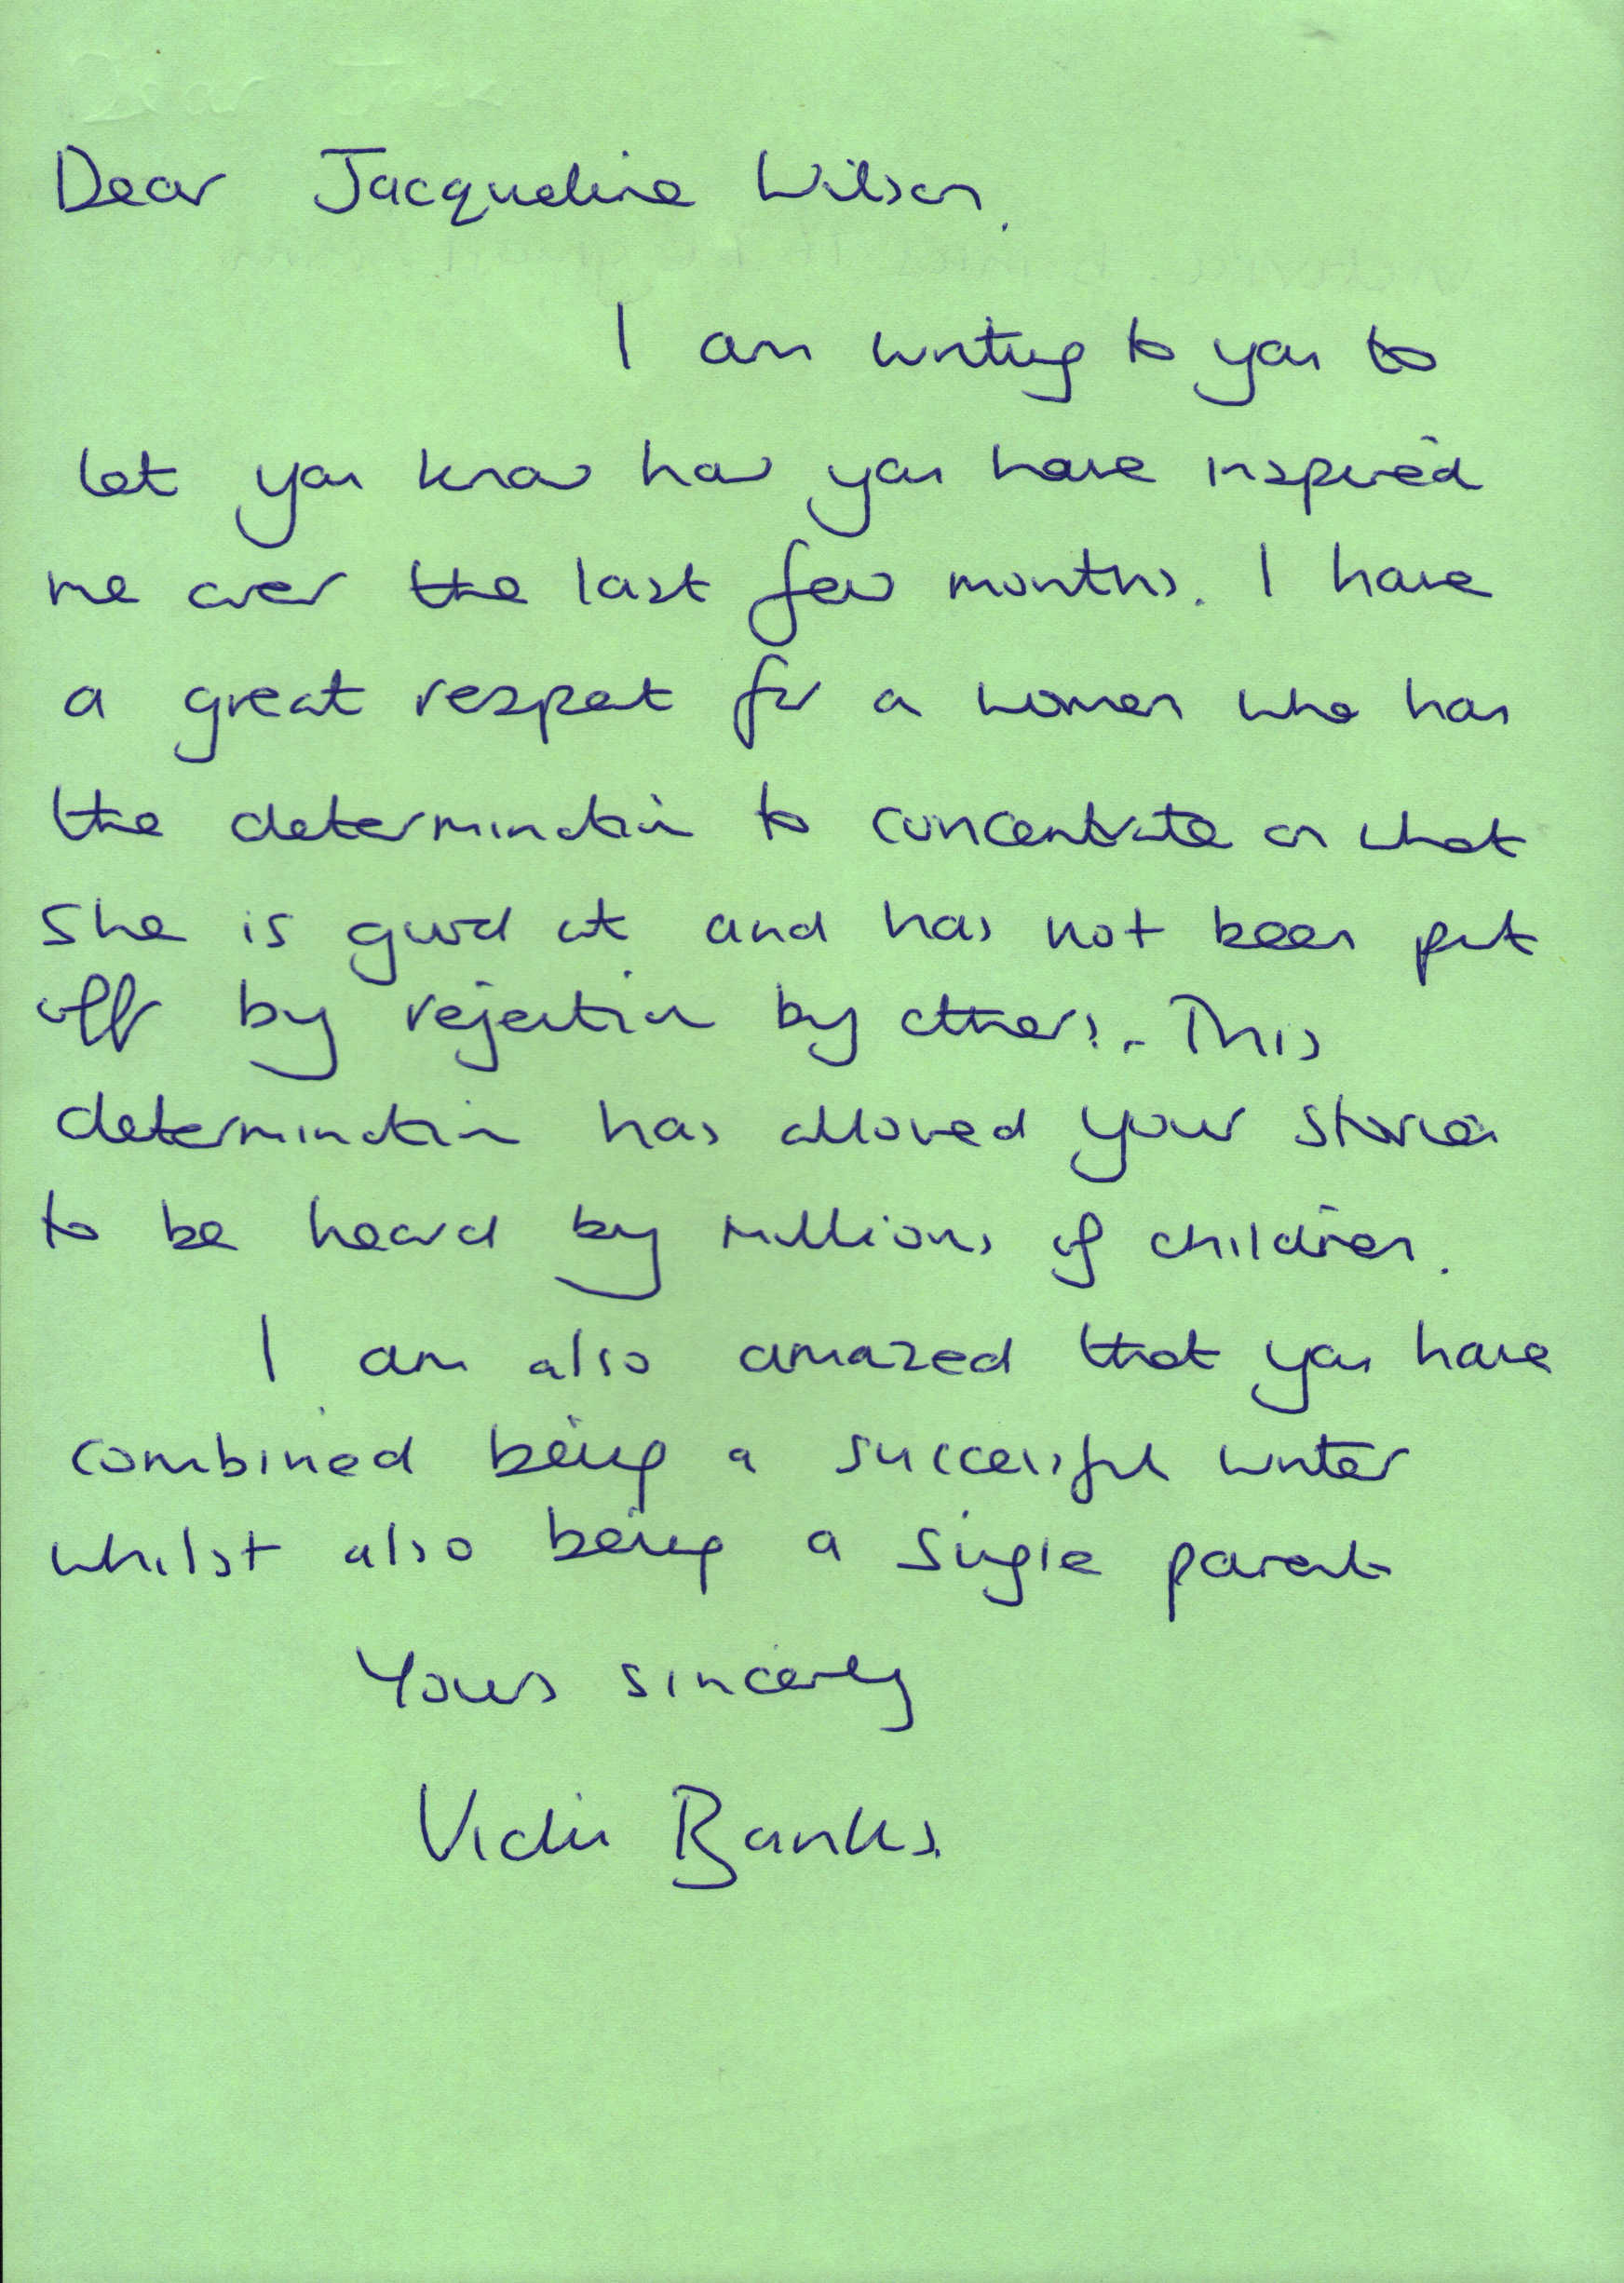 Dear Jacqueline Wilson,
I am writing to you to
let you know how you have inspired
me over the last few months. I have
a great respect for a women who has
the determination to concentrate on what
she is good at and has not been put
off by rejection by others. This
determination has allowed your stories
to be heard by millions of children.
I am also amazed that you have
combined being a successful writer
whilst also being a single parent
Yours sincerely
Vicki Banks.